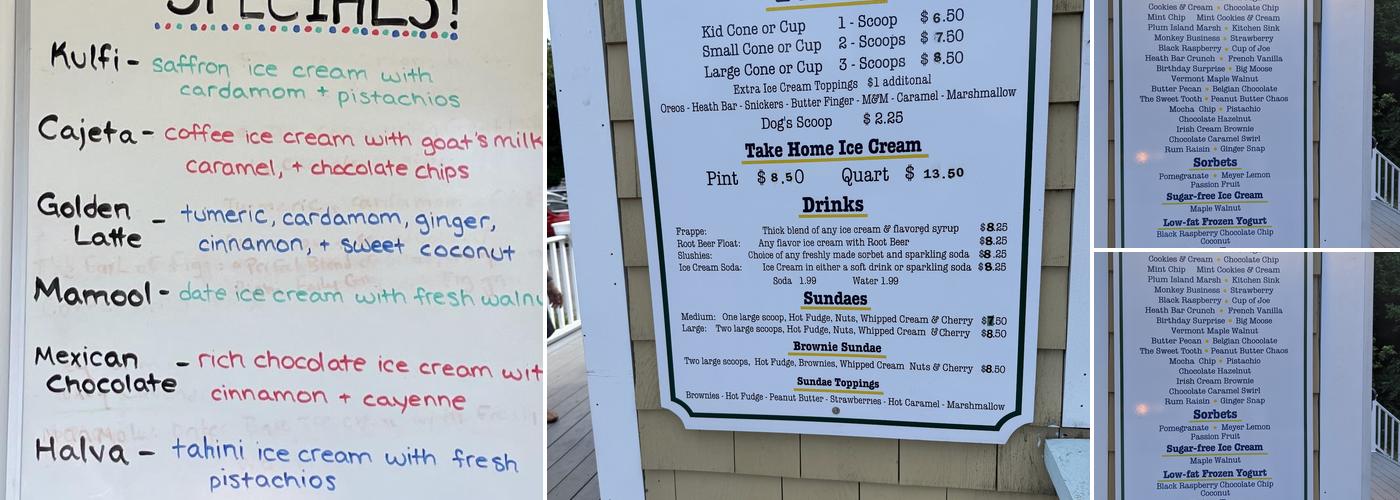 SPECIALS!
Kulfi - saffron ice cream with
cardamom + pistachios
Cajeta - coffee ice cream with goat's milk
caramel, + chocolate chips
Golden
Latte - tumeric, cardamom, ginger,
cinnamon, + sweet coconut
Mamool - date ice cream with fresh
Mexican
Chocolate - rich chocolate ice cream
cinnamon + cayenne
Halva - tahini ice cream with fresh
pistachios
Kid Cone or Cup 1 - Scoop $ 6.50
Small Cone or Cup 2 - Scoops $ 7.50
Large Cone or Cup 3 - Scoops $ 8.50
Extra Ice Cream Toppings $1 additonal
Oreos - Heath Bar - Snickers - Butter Finger - M&M - Caramel - Marshmallow
Dog's Scoop $ 2.25
Take Home Ice Cream
Pint $ 8.50 Quart $ 13.50
Drinks
Frappe: Thick blend of any ice cream & flavored syrup $8.25
Root Beer Float: Any flavor ice cream with Root Beer $8.25
Slushies: Choice of any freshly made sorbet and sparkling soda $8.25
Ice Cream Soda: Ice Cream in either a soft drink or sparkling soda $8.25
Soda 1.99 Water 1.99
Sundaes
Medium: One large scoop, Hot Fudge, Nuts, Whipped Cream & Cherry $7.50
Large: Two large scoops, Hot Fudge, Nuts, Whipped Cream & Cherry $8.50
Brownie Sundae
Two large scoops, Hot Fudge, Brownies, Whipped Cream Nuts & Cherry $8.50
Sundae Toppings
Brownies - Hot Fudge - Peanut Butter - Strawberries - Hot Caramel - Marshmallow
Cookies & Cream Chocolate Chip
Mint Chip Mint Cookies & Cream
Plum Island Marsh Kitchen Sink
Monkey Business Strawberry
Black Raspberry Cup of Joe
Heath Bar Crunch French Vanilla
Birthday Surprise Big Moose
Vermont Maple Walnut
Butter Pecan Belgian Chocolate
The Sweet Tooth Peanut Butter Chaos
Mocha Chip Pistachio
Chocolate Hazelnut
Irish Cream Brownie
Chocolate Caramel Swirl
Rum Raisin Ginger Snap
Sorbets
Pomegranate Meyer Lemon
Passion Fruit
Sugar-free Ice Cream
Maple Walnut
Low-fat Frozen Yogurt
Black Raspberry Chocolate Chip
Coconut
Cookies & Cream Chocolate Chip
Mint Chip Mint Cookies & Cream
Plum Island Marsh Kitchen Sink
Monkey Business Strawberry
Black Raspberry Cup of Joe
Heath Bar Crunch French Vanilla
Birthday Surprise Big Moose
Vermont Maple Walnut
Butter Pecan Belgian Chocolate
The Sweet Tooth Peanut Butter Chaos
Mocha Chip Pistachio
Chocolate Hazelnut
Irish Cream Brownie
Chocolate Caramel Swirl
Rum Raisin Ginger Snap
Sorbets
Pomegranate Meyer Lemon
Passion Fruit
Sugar-free Ice Cream
Maple Walnut
Low-fat Frozen Yogurt
Black Raspberry Chocolate Chip
Coconut